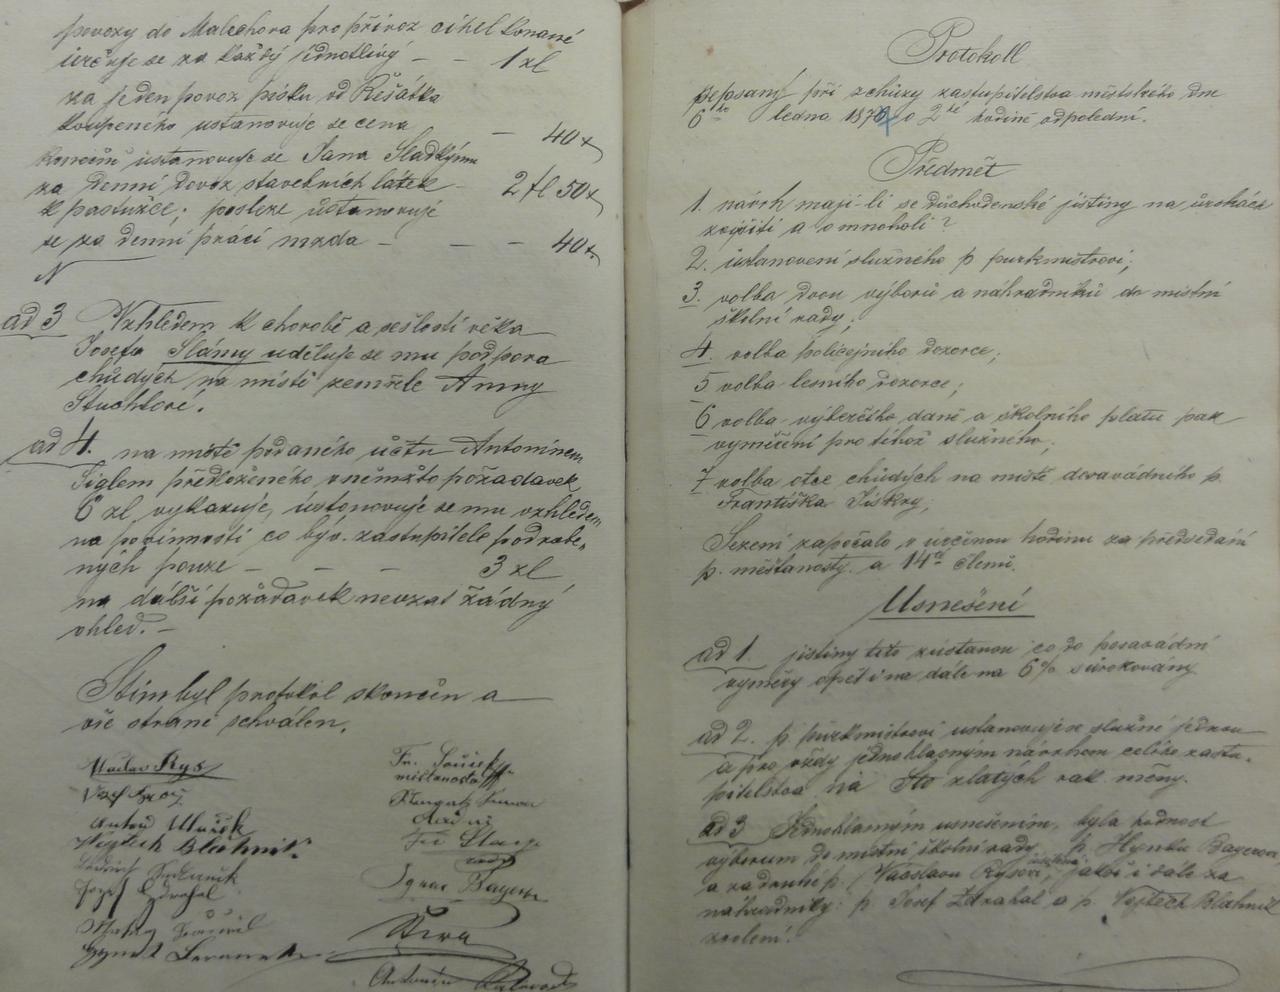 povozy do Malechova pro přívoz cihel konané
určuje se za každý jednotlivý — — 1 zl
za jeden povoz písku od Rešátka
koupeného ustanovuje se cena — 40 x
konečně ustanovuje se Jana Sladkýmu
za denní dovoz stavebních látek — 2 fl 50 x
k pastušce; posléze ustanovuje
se za denní prácí mzda — — — 40 x
ad 3 Vzhledem k chorobě a sešlosti věka
Josefa Slámy uděluje se mu podpora
chudých na místě zemřele Anny
Stuchlové.
ad 4. na místě podaného účtu Antonínem
Siglem předloženého, v němžto požadavek
6 zl vykazuje, ustanovuje se mu vzhledem
na povinnosti co býv. zastupitele podrobe-
ných pouze — — — 3 zl
na další požadavek nevzat žádný
ohled. —
S tím byl protokol skončen a
vše straně schválen.
Václav Rys
Fr.
měšťanosta
Josef
Antoň
radní
Vojtěch Bláhnik
Fr.
radní
Josef Zdrahal
Ignac Bayer
Matěj
Hynek
Antonín
Protokoll
sepsaný při schůzy zastupitelstva městského dne
6ho ledna 187 o 2té hodině odpolední.
Předmět
1. návrh mají-li se důchodenské jistiny na úrokách
zvýšiti a o mnoholi?
2. ustanovení služného p purkmistrovi;
3. volba dvou výborů a náhradníků do místní
školní rady;
4. volba policejního dozorce;
5 volba lesního dozorce;
6 volba výběrčího daně a školního platu pak
vyměření pro téhož služného;
7 volba otce chudých na místě dosavádního p.
Františka Jiskry;
Sezení započalo v určenou hodinu za předsedání
p. měšťanosty a 14ti členů.
Usnešení
ad 1. jistiny tito zůstanou co do posavádní
výměry opět i na dále na 6% zúrokovány
ad 2. p purkmistrovi ustanovuje se služné jednou
a pro vždy jednohlasným návrhem celého zastu-
pitelstva na Sto zlatých rak. měny.
ad 3 Jednohlasným usnešením, byla hodnost
výborum do místní školní rady p. Hynku Bayerovi
a za druhé p. Václavu Rysovi, jakož i dále za
náhradníky: p. Josef Zdrahal a p. Vojtěch Bláhnik
zvoleni.